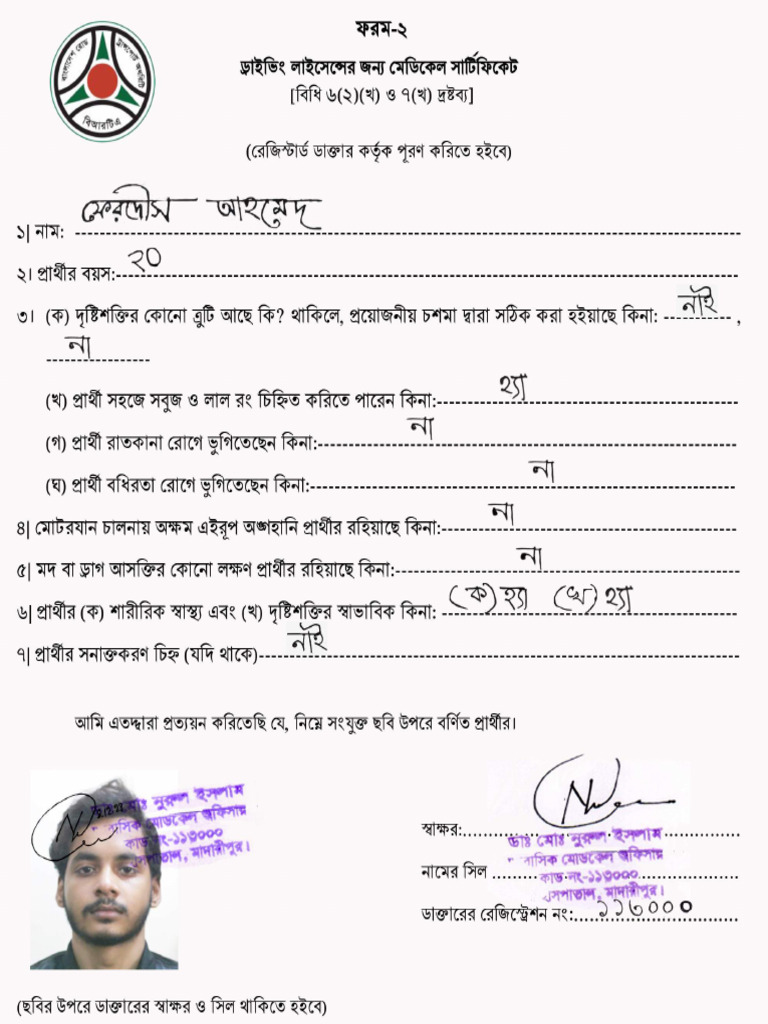 ফরম-২
ড্রাইভিং লাইসেন্সের জন্য মেডিকেল সার্টিফিকেট
[বিধি ৬(২)(খ) ও ৭(খ) দ্রষ্টব্য]
বাংলাদেশ রোড ট্রান্সপোর্ট অথরিটি
বিআরটিএ
(রেজিস্টার্ড ডাক্তার কর্তৃক পূরণ করিতে হইবে)
১| নাম: ফেরদৌস আহমেদ
২। প্রার্থীর বয়স: ২০
৩। (ক) দৃষ্টিশক্তির কোনো ত্রুটি আছে কি? থাকিলে, প্রয়োজনীয় চশমা দ্বারা সঠিক করা হইয়াছে কিনা: নাই ,
না
(খ) প্রার্থী সহজে সবুজ ও লাল রং চিহ্নিত করিতে পারেন কিনা: হ্যা
(গ) প্রার্থী রাতকানা রোগে ভুগিতেছেন কিনা: না
(ঘ) প্রার্থী বধিরতা রোগে ভুগিতেছেন কিনা: না
৪| মোটরযান চালনায় অক্ষম এইরূপ অঙ্গহানি প্রার্থীর রহিয়াছে কিনা: না
৫| মদ বা ড্রাগ আসক্তির কোনো লক্ষণ প্রার্থীর রহিয়াছে কিনা: না
৬| প্রার্থীর (ক) শারীরিক স্বাস্থ্য এবং (খ) দৃষ্টিশক্তির স্বাভাবিক কিনা: (ক) হ্যা (খ) হ্যা
৭| প্রার্থীর সনাক্তকরণ চিহ্ন (যদি থাকে) নাই
আমি এতদ্দ্বারা প্রত্যয়ন করিতেছি যে, নিম্নে সংযুক্ত ছবি উপরে বর্ণিত প্রার্থীর।
ডাঃ মোঃ নুরুল ইসলাম
মেডিকেল অফিসার
কোড নং-১১৩০০০
সপাতাল, মাদারীপুর।
স্বাক্ষর:
ডাঃ মোঃ নুরুল ইসলাম
নামের সিল
বাসিক মেডিকেল অফিসার
কোড নং-১১৩০০০
সপাতাল, মাদারীপুর।
ডাক্তারের রেজিস্ট্রেশন নং: ১১৩০০০
(ছবির উপরে ডাক্তারের স্বাক্ষর ও সিল থাকিতে হইবে)